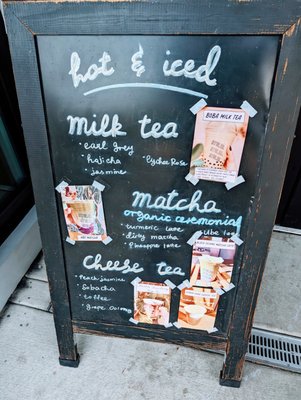 hot & iced
milk tea
• earl grey
• hojicha
• Lychee Rose
• jasmine
BOBA MILK TEA
MATCHA
organic ceremonial
• turmeric luve
• ube luve
• dirty matcha
• Pineapple luve
Cheese tea
• Peach Jasmine
• Sobacha
• toffee
• grape Oolong